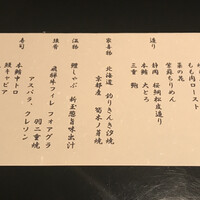 もも肉ロースト
菜の花
蟹鮨ちりめん
造り
静岡 桜鯛松皮造り
本鮪 大とろ
三重 鮑
家喜物
北海道 釣りきんき汐焼
京都産 筍木ノ芽焼
温物
鰹しゃぶ 新玉葱旨味出汁
焼肴
飛騨牛フィレ フォアグラ
羽二重焼
アスパラ、クレソン
寿司
本鮪中トロ
鮭キャビア